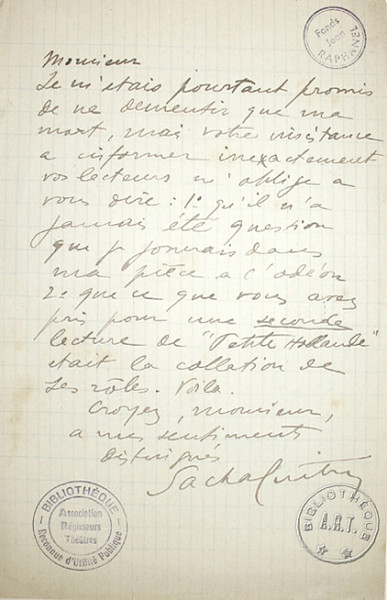 Fonds
Jean
RAPHANEL
Monsieur
Je m'etais pourtant promis
de ne dementir que ma
mort, mais votre insistance
a informer inexactement
vos lecteurs m'oblige a
vous dire : 1° qu'il n'a
jamais été question
que je jouerais dans
ma pièce a l'odéon
2° que ce que vous avez
pris pour une seconde
lecture de "Petite Hollande"
etait la collation de
ses rôles. Voila.
Croyez, monsieur,
a mes sentiments
distingués
Sacha Guitry
BIBLIOTHÈQUE
Association
Régisseurs
Théâtres
Reconnue d'Utilité Publique
BIBLIOTHÈQUE
A.R.T.